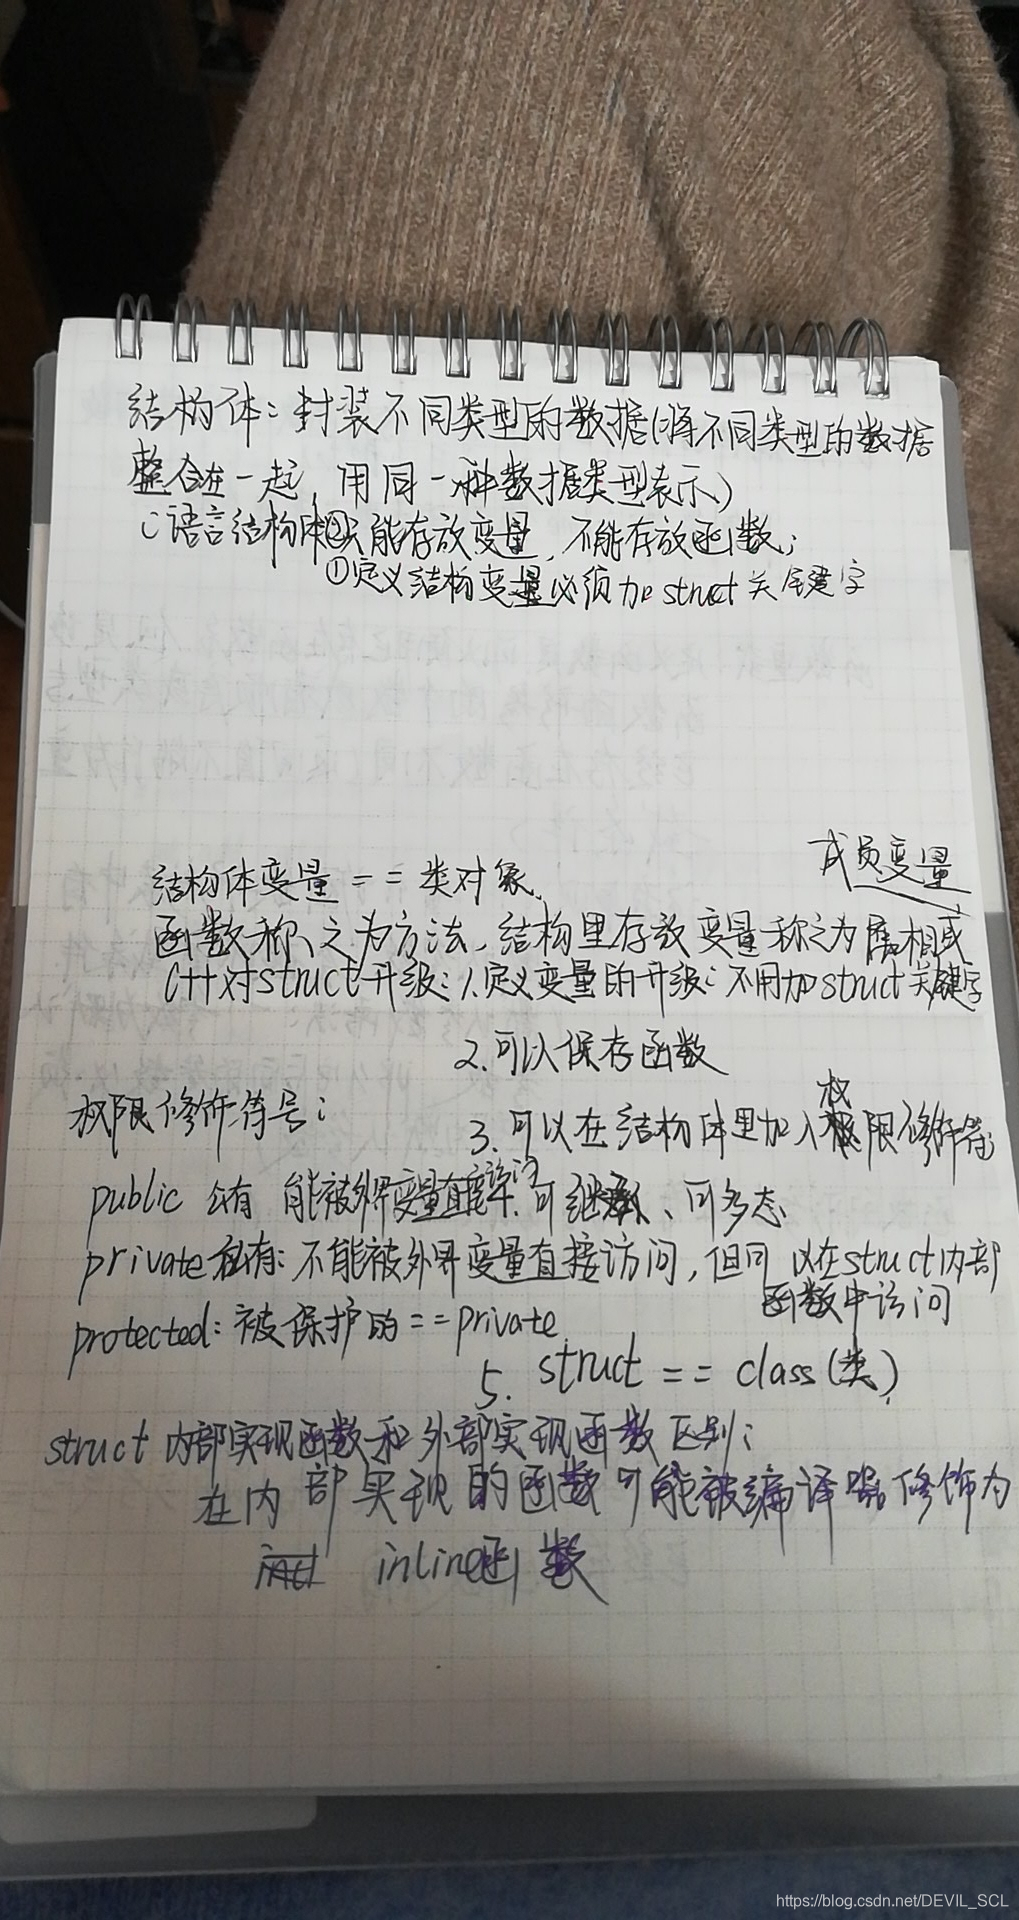 结构体:封装不同类型的数据(将不同类型的数据
整合在一起,用同一种数据类型表示)
C语言结构体②只能存放变量,不能存放函数;
①定义结构变量必须加struct关键字
成员变量
结构体变量 == 类对象、
函数称之为方法,结构里存放变量称之为属相或
C++对struct升级:1.定义变量的升级:不用加struct关键字
2.可以保存函数
权限修饰符号:
权
3.可以在结构体里加入限修饰符
public 公有 能被外界变量直接访问、可继承、可多态
private私有:不能被外界变量直接访问,但可以在struct内部
函数中访问
protected:被保护的==private
5. struct == class(类)
struct内部实现函数和外部实现函数区别:
在内部实现的函数可能被编译器修饰为
inline函数
https://blog.csdn.net/DEVIL_SCL